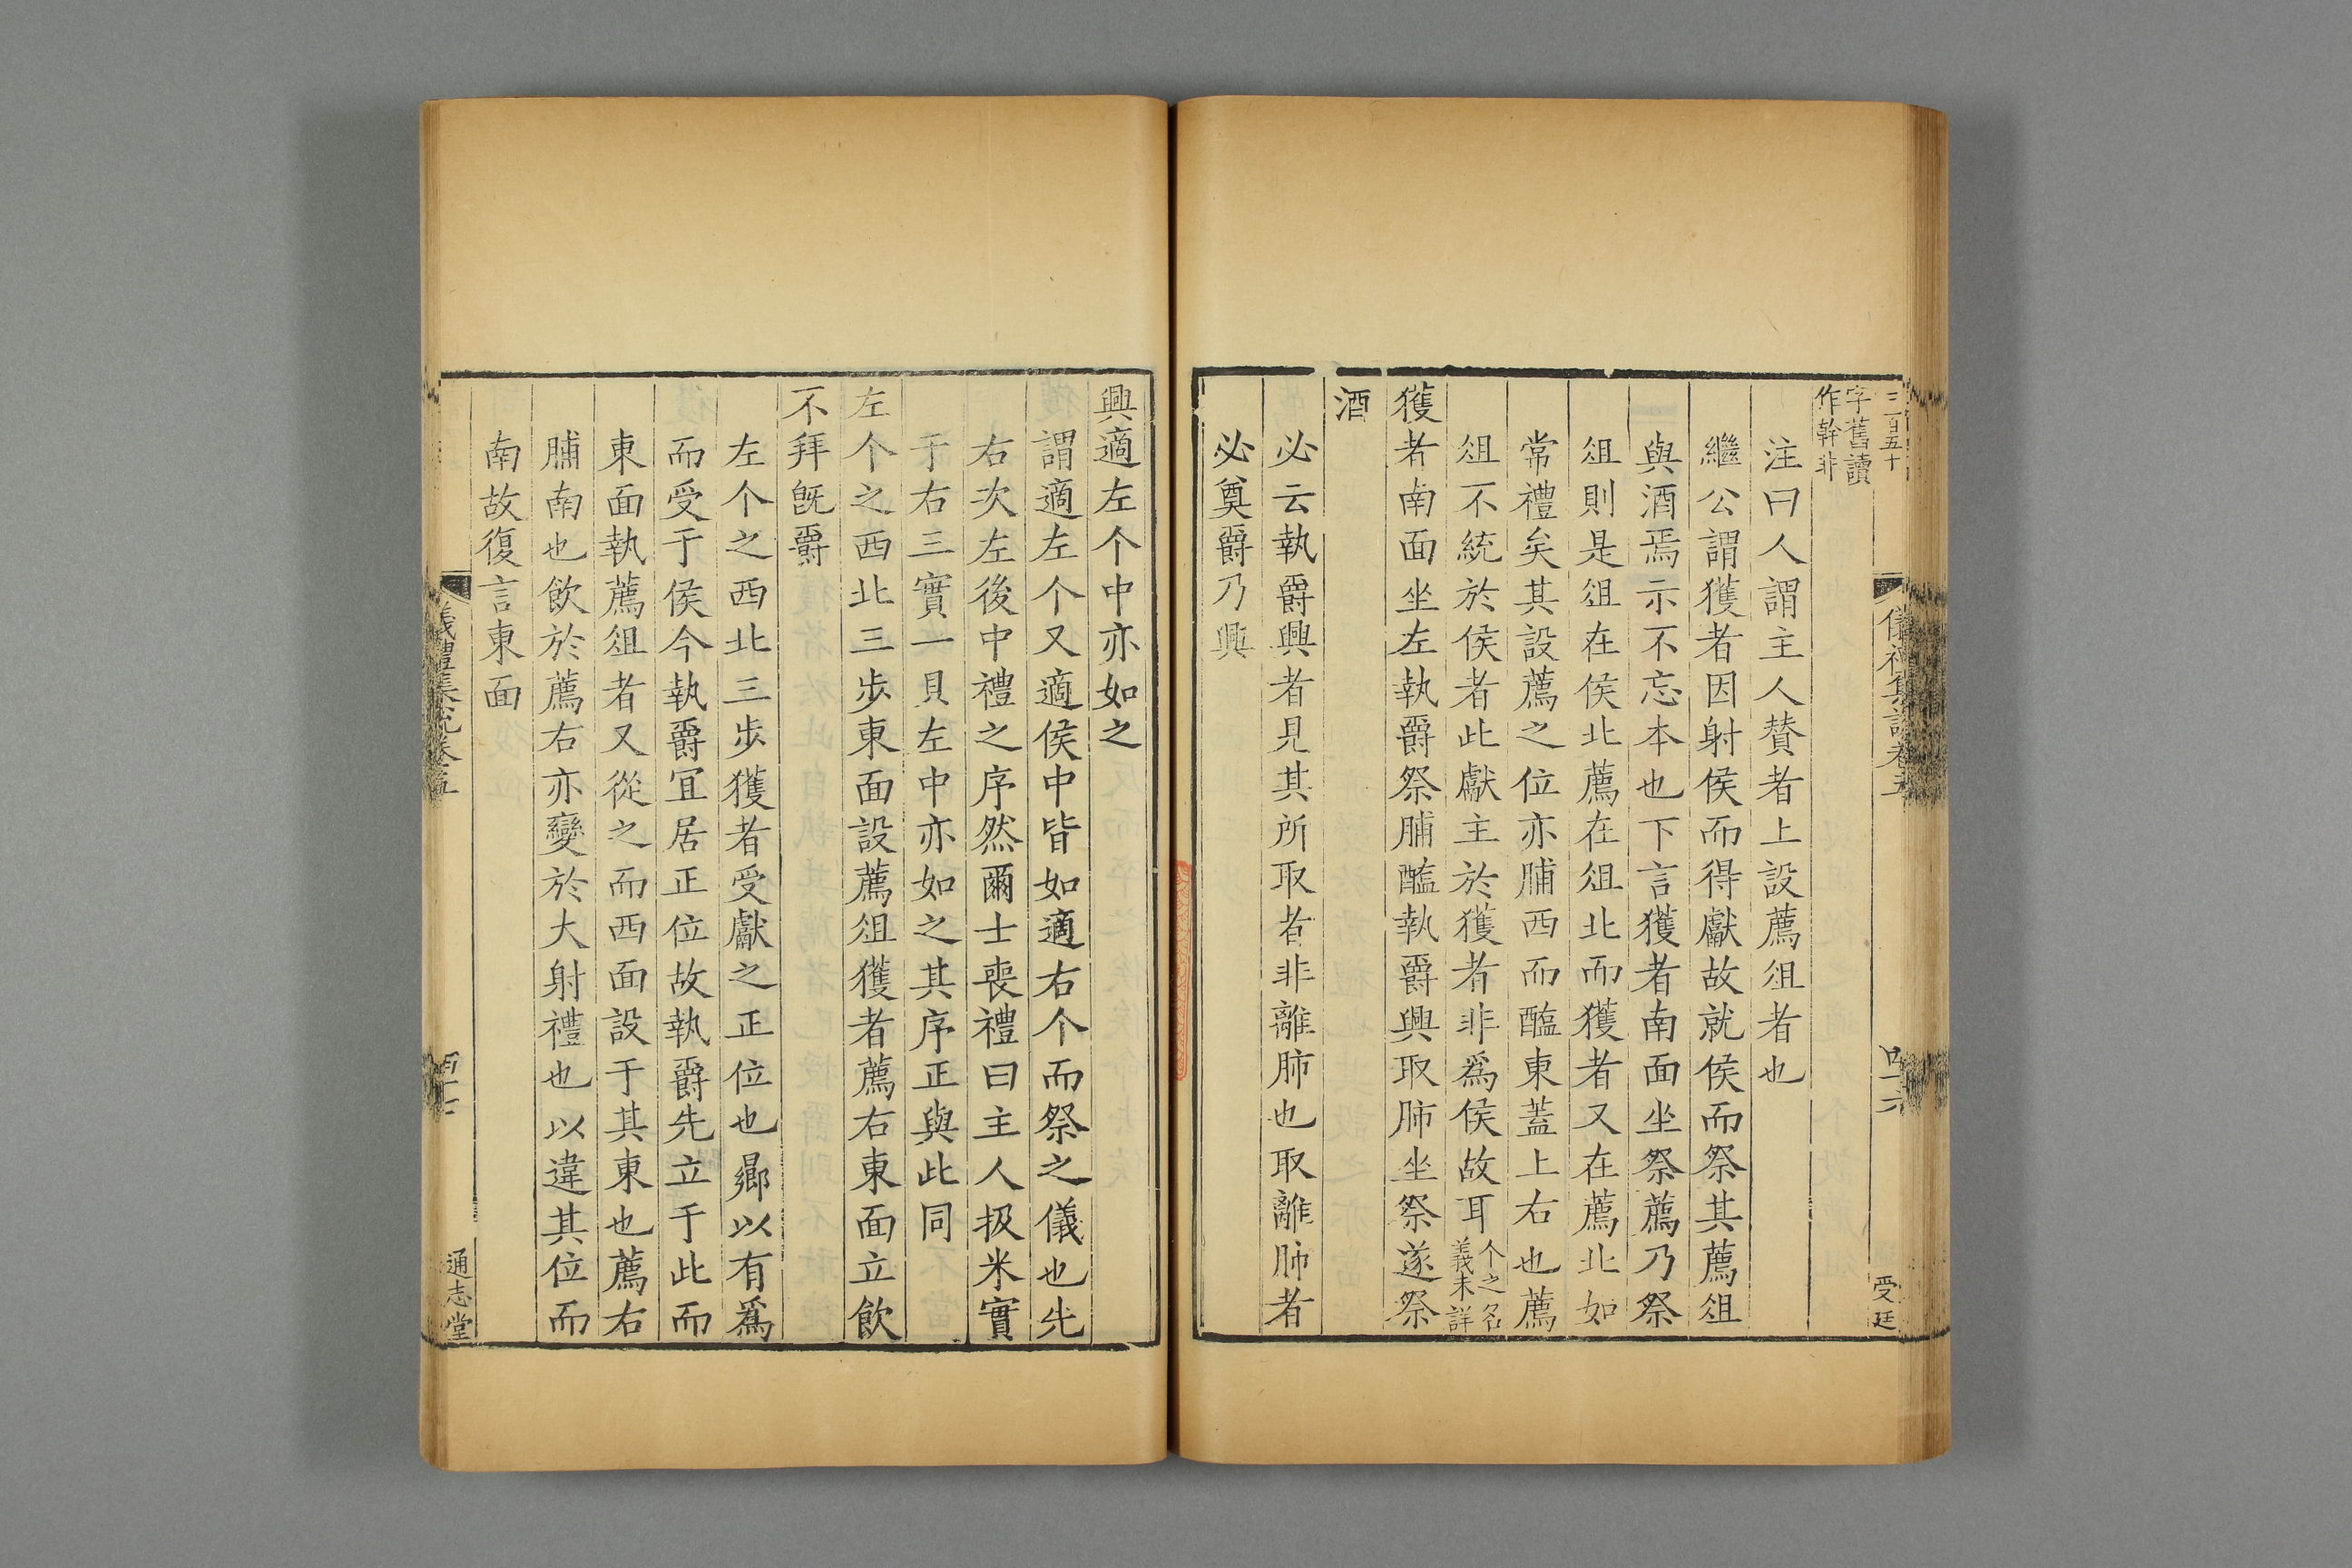 三百五十
儀禮集說卷五
受廷
字舊讀
作幹非
注曰人謂主人賛者上設薦俎者也
繼公謂獲者因射侯而得獻故就侯而祭其薦俎
與酒焉示不忘本也下言獲者南面坐祭薦乃祭
俎則是俎在侯北薦在俎北而獲者又在薦北如
常禮矣其設薦之位亦脯西而醢東蓋上右也薦
俎不統於侯者此獻主於獲者非爲侯故耳个之名義未詳
獲者南面坐左執爵祭脯醢執爵興取肺坐祭遂祭
酒
必云執爵興者見其所取者非離肺也取離肺者
必奠爵乃興
興適左个中亦如之
謂適左个又適侯中皆如適右个而祭之儀也先
右次左後中禮之序然爾士喪禮曰主人扱米實
于右三實一貝左中亦如之其序正與此同
左个之西北三步東面設薦俎獲者薦右東面立飲
不拜旣爵
左个之西北三步獲者受獻之正位也鄉以有爲
而受于侯今執爵宜居正位故執爵先立于此而
東面執薦俎者又從之而西面設于其東也薦右
脯南也飲於薦右亦變於大射禮也以違其位而
南故復言東面
儀禮集說卷五
通志堂